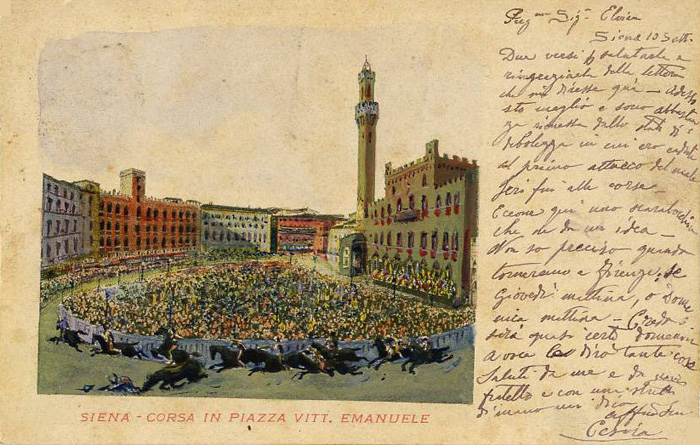 SIENA - CORSA IN PIAZZA VITT. EMANUELE
Sig.ª Elvira
Siena 10 Sett.
Due versi p salutarla e
ringraziarla della lettera
che mi diresse qui - adesso
sto meglio e sono
rimessa dallo stato di
debolezza in cui ero
al primo attacco del male
Ieri fui alle corse -
Eccone qui uno scarabocchio
che ne dà un'idea -
Non so preciso quando
torneremo a Firenze, se
Giovedì mattina, o Dome
nica mattina - Credo
sarà quasi certo domenica
A voce dirò tante cose
Saluti da me e da mio
fratello e con una stretta
di mano mi dico